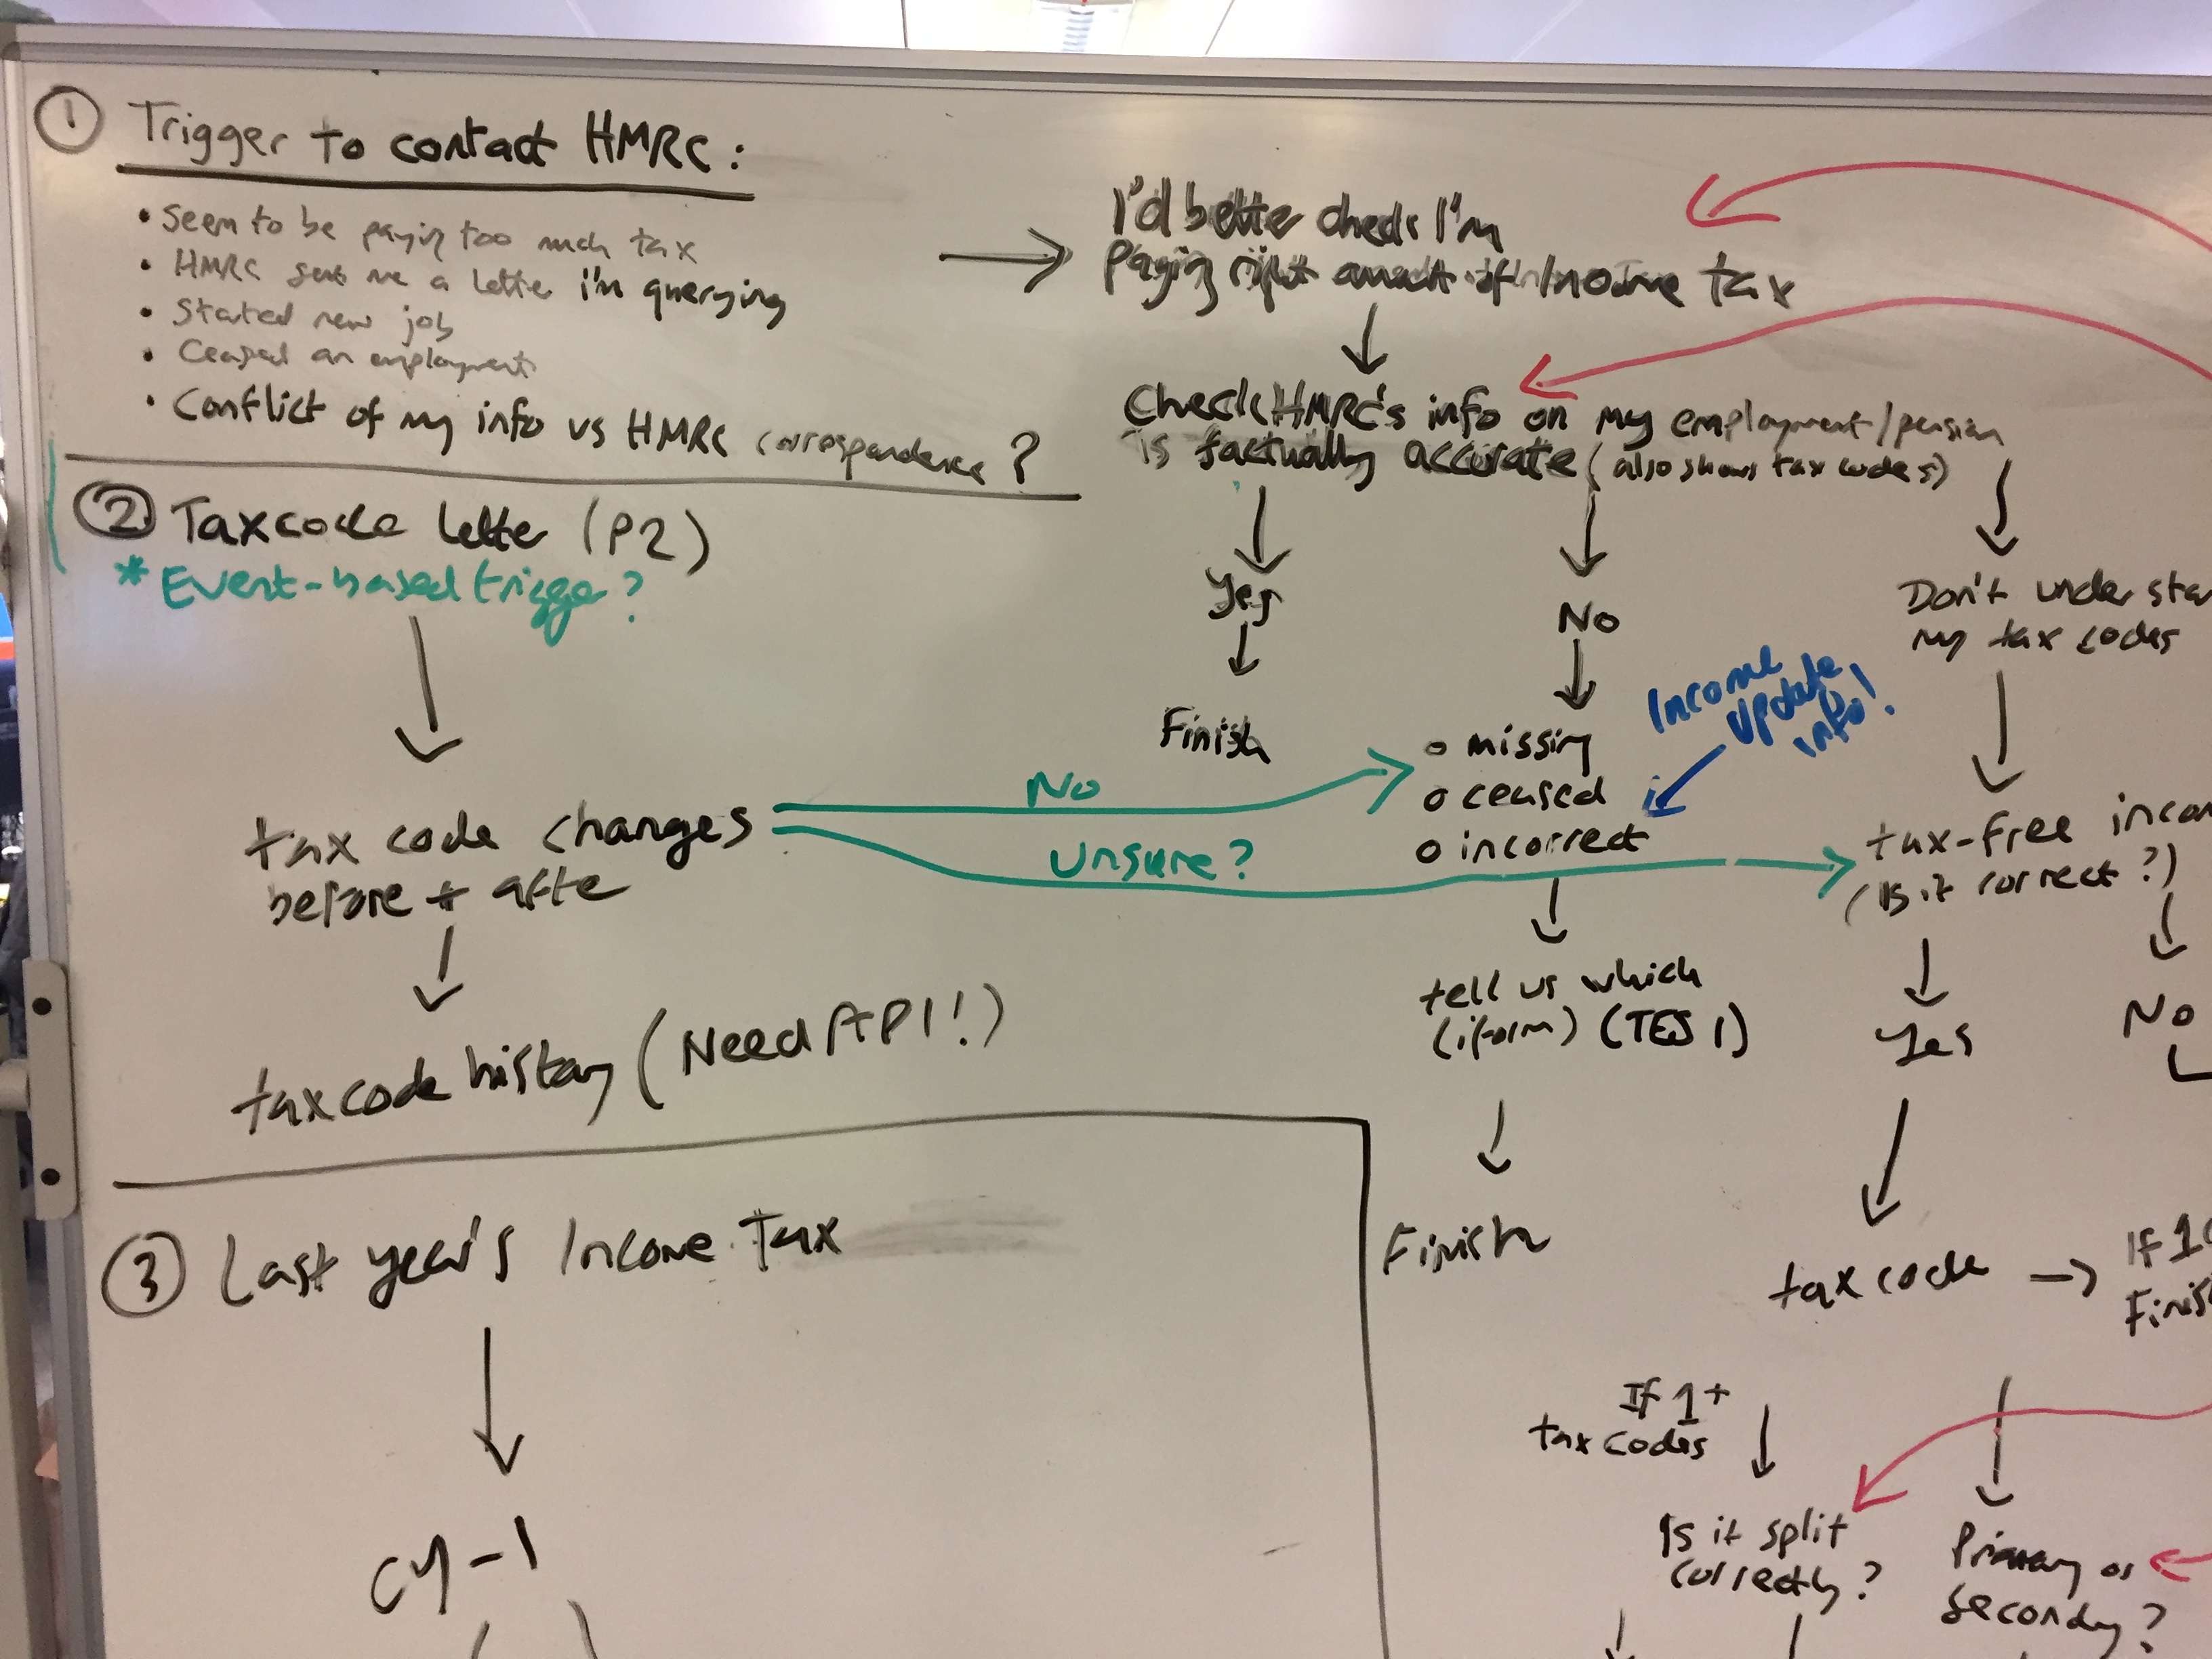 ① Trigger to contact HMRC:
• Seem to be paying too much tax
• HMRC sent me a letter i'm querying
• Started new job
• Ceased an employment
• Conflict of my info vs HMRC correspondence?
I'd better check I'm
Paying right amount of Income tax
Check HMRC's info on my employment/pension
is factually accurate (also shows tax codes)
Yes
Finish
No
o missing
o ceased
o incorrect
Income
update
info!
tell us which
(iform) (TES 1)
Finish
Don't understa
my tax codes
tax-free incom
(Is it correct?)
Yes
No
tax code → If 1
Finis
If 1+
tax codes
Is it split
correctly?
Primary or
secondary?
② Tax code letter (P2)
* Event-based trigger?
tax code changes
before + after
No
Unsure?
tax code history (Need API!)
③ Last year's Income Tax
CY-1